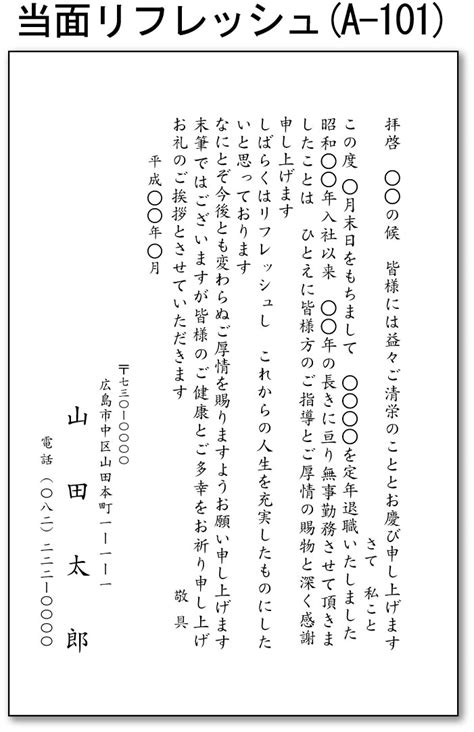 当面リフレッシュ(A-101)
拝啓　〇〇の候　皆様には益々ご清栄のこととお慶び申し上げます
さて　私こと
この度　〇月末日をもちまして　〇〇〇〇を定年退職いたしました
昭和〇〇年入社以来　〇〇年の長きに亘り無事勤務させて頂きま
したことは　ひとえに皆様方のご指導とご厚情の賜物と深く感謝
申し上げます
しばらくはリフレッシュし　これからの人生を充実したものにした
いと思っております
なにとぞ今後とも変わらぬご厚情を賜りますようお願い申し上げます
末筆ではございますが皆様のご健康とご多幸をお祈り申し上げ
お礼のご挨拶とさせていただきます
敬具
平成〇〇年〇月
〒七三〇-〇〇〇〇
広島市中区山田本町一-一-一
山田太郎
電話（〇八二）二二二-〇〇〇〇